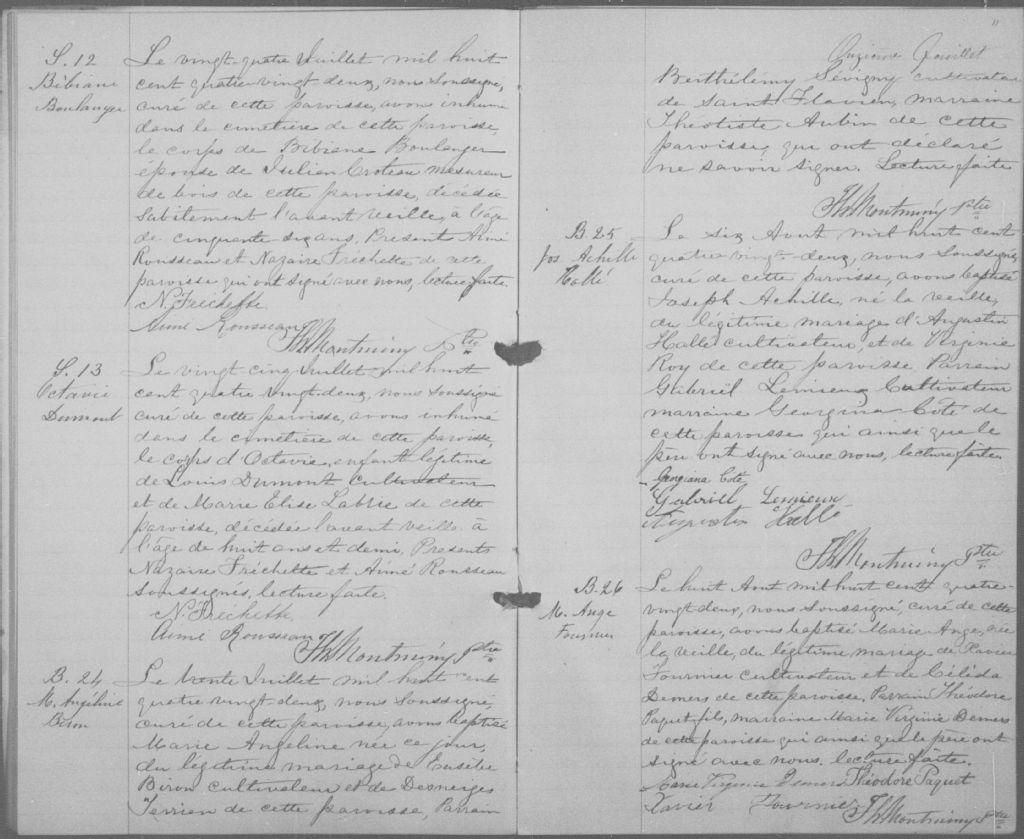 S. 12
Bébiane
Boulanger
Le vingt-quatre Juillet mil huit
cent quatre-vingt-deux, nous soussigné,
curé de cette paroisse, avons inhumé
dans le cimetière de cette paroisse,
le corps de Bibiane Boulanger
épouse de Isilien Croteau mesureur
de bois de cette paroisse, décédée
subitement l'avant veille, à l'âge
de cinquante six ans. Présents Aimé
Rousseau et Nazaire Fréchette de cette
paroisse qui ont signé avec nous, lecture faite.
N. Fréchette
Aimé Rousseau
Th Montminy Ptre
S. 13
Octavie
Dumont
Le vingt cinq Juillet mil huit
cent quatre vingt-deux, nous soussigné
curé de cette paroisse, avons inhumé
dans le cimetière de cette paroisse,
le corps d'Octavie, enfant légitime
de Louis Dumont cultivateur
et de Marie Elise Labrie de cette
paroisse, décédée l'avant veille à
l'âge de huit ans et demi, Présents
Nazaire Fréchette et Aimé Rousseau
soussignés, lecture faite.
N. Fréchette
Aimé Rousseau
Th Montminy Ptre
B. 24
M. Angéline
Biron
Le trente Juillet mil huit cent
quatre vingt-deux, nous soussigné,
curé de cette paroisse, avons baptisé
Marie Angeline née ce jour,
du légitime mariage de Eusèbe
Biron cultivateur et de Desneiges
Terrien de cette paroisse, Parrain
11
Onzième feuillet
Berthélémy Sévigny cultivateur
de Saint Flavien, marraine
Théotiste Aubin de cette
paroisse, qui ont déclaré
ne savoir signer. Lecture faite
Th Montminy Ptre
B 25
Jos. Achille
Hallé
Le six Aout mil huit cent
quatre vingt-deux, nous soussigné,
curé de cette paroisse, avons baptisé
Joseph Achille, né la veille,
du légitime mariage d'Augustin
Hallé cultivateur, et de Virginie
Roy de cette paroisse, Parrain
Gabriël Lemieux Cultivateur
marraine Georgina Côté de
cette paroisse qui ainsi que le
père ont signé avec nous, lecture faite.
Georgiana Coté
Gabriell Lemieux
Augustin Hallé
Th Montminy Ptre
B. 26
M. Ange
Fournier
Le huit Aout mil huit cent quatre-
vingt-deux, nous soussigné, curé de cette
paroisse, avons baptisé Marie Ange, née
la veille, du légitime mariage de Xavier
Fournier cultivateur et de Céléda
Demers de cette paroisse. Parrain Théodore
Paquet fils, marraine Marie Virginie Demers
de cette paroisse qui ainsi que le père ont
signé avec nous. lecture faite.
Marie Virginie Demers Théodore Paquet
Xavier Fournier Th Montminy Ptre